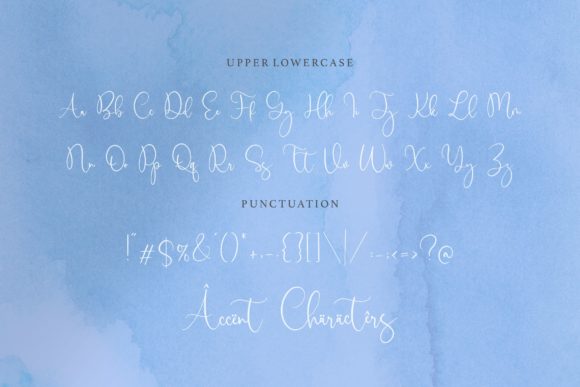 UPPER LOWERCASE
Aa Bb Cc Dd Ee Ff Gg Hh Ii Jj Kk Ll Mm
Nn Oo Pp Qq Rr Ss Tt Uu Vv Ww Xx Yy Zz
PUNCTUATION
!"#$%&'()*+,-.{}[]\|/:-;<=>?@
Âccënt Chäräctêrs